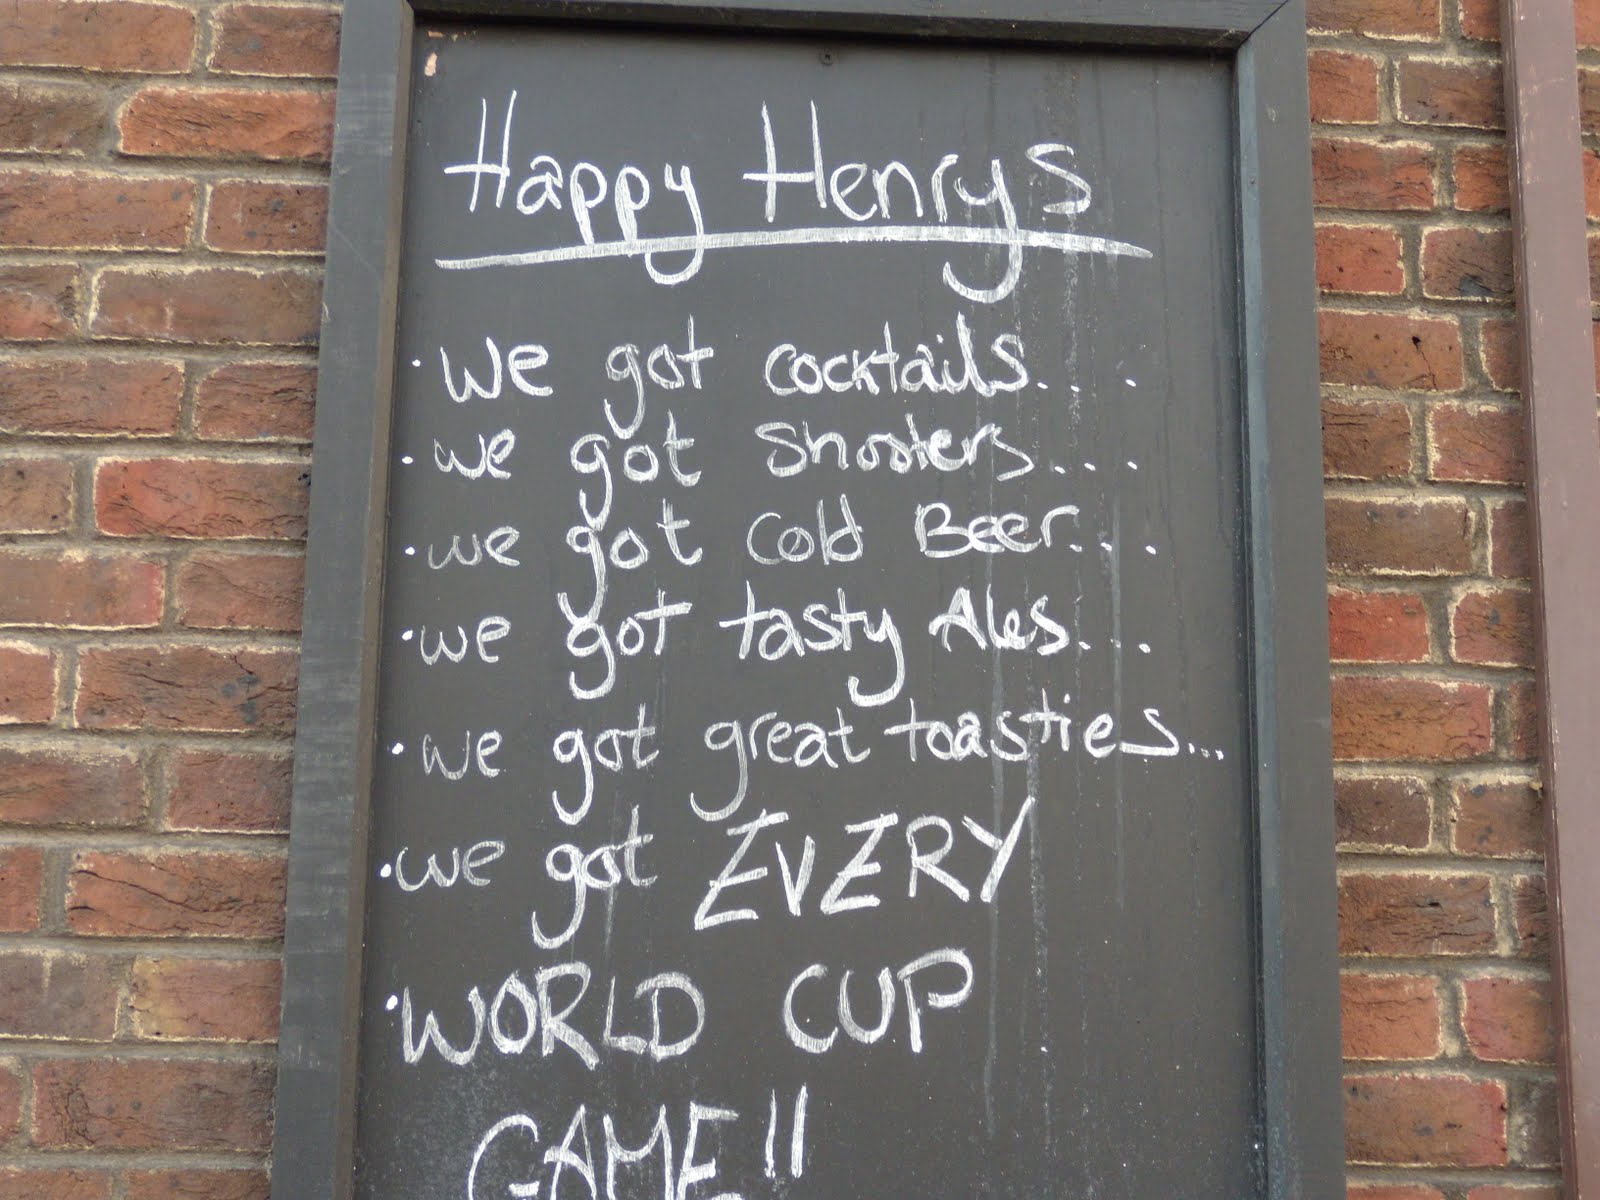 Happy Henrys
· we got cocktails....
· we got shooters....
· we got cold Beer....
· we got tasty Ales....
· we got great toasties...
· we got EVERY
· WORLD CUP
GAME!!